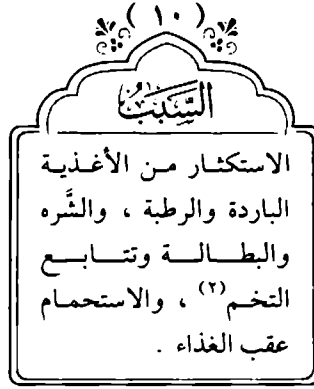 ( ١٠ )
السَّبَبُ
الاستكثار من الأغذية
الباردة والرطبة ، والشَّره
والبطالة وتتابع
التخم(٢) ، والاستحمام
عقب الغذاء .